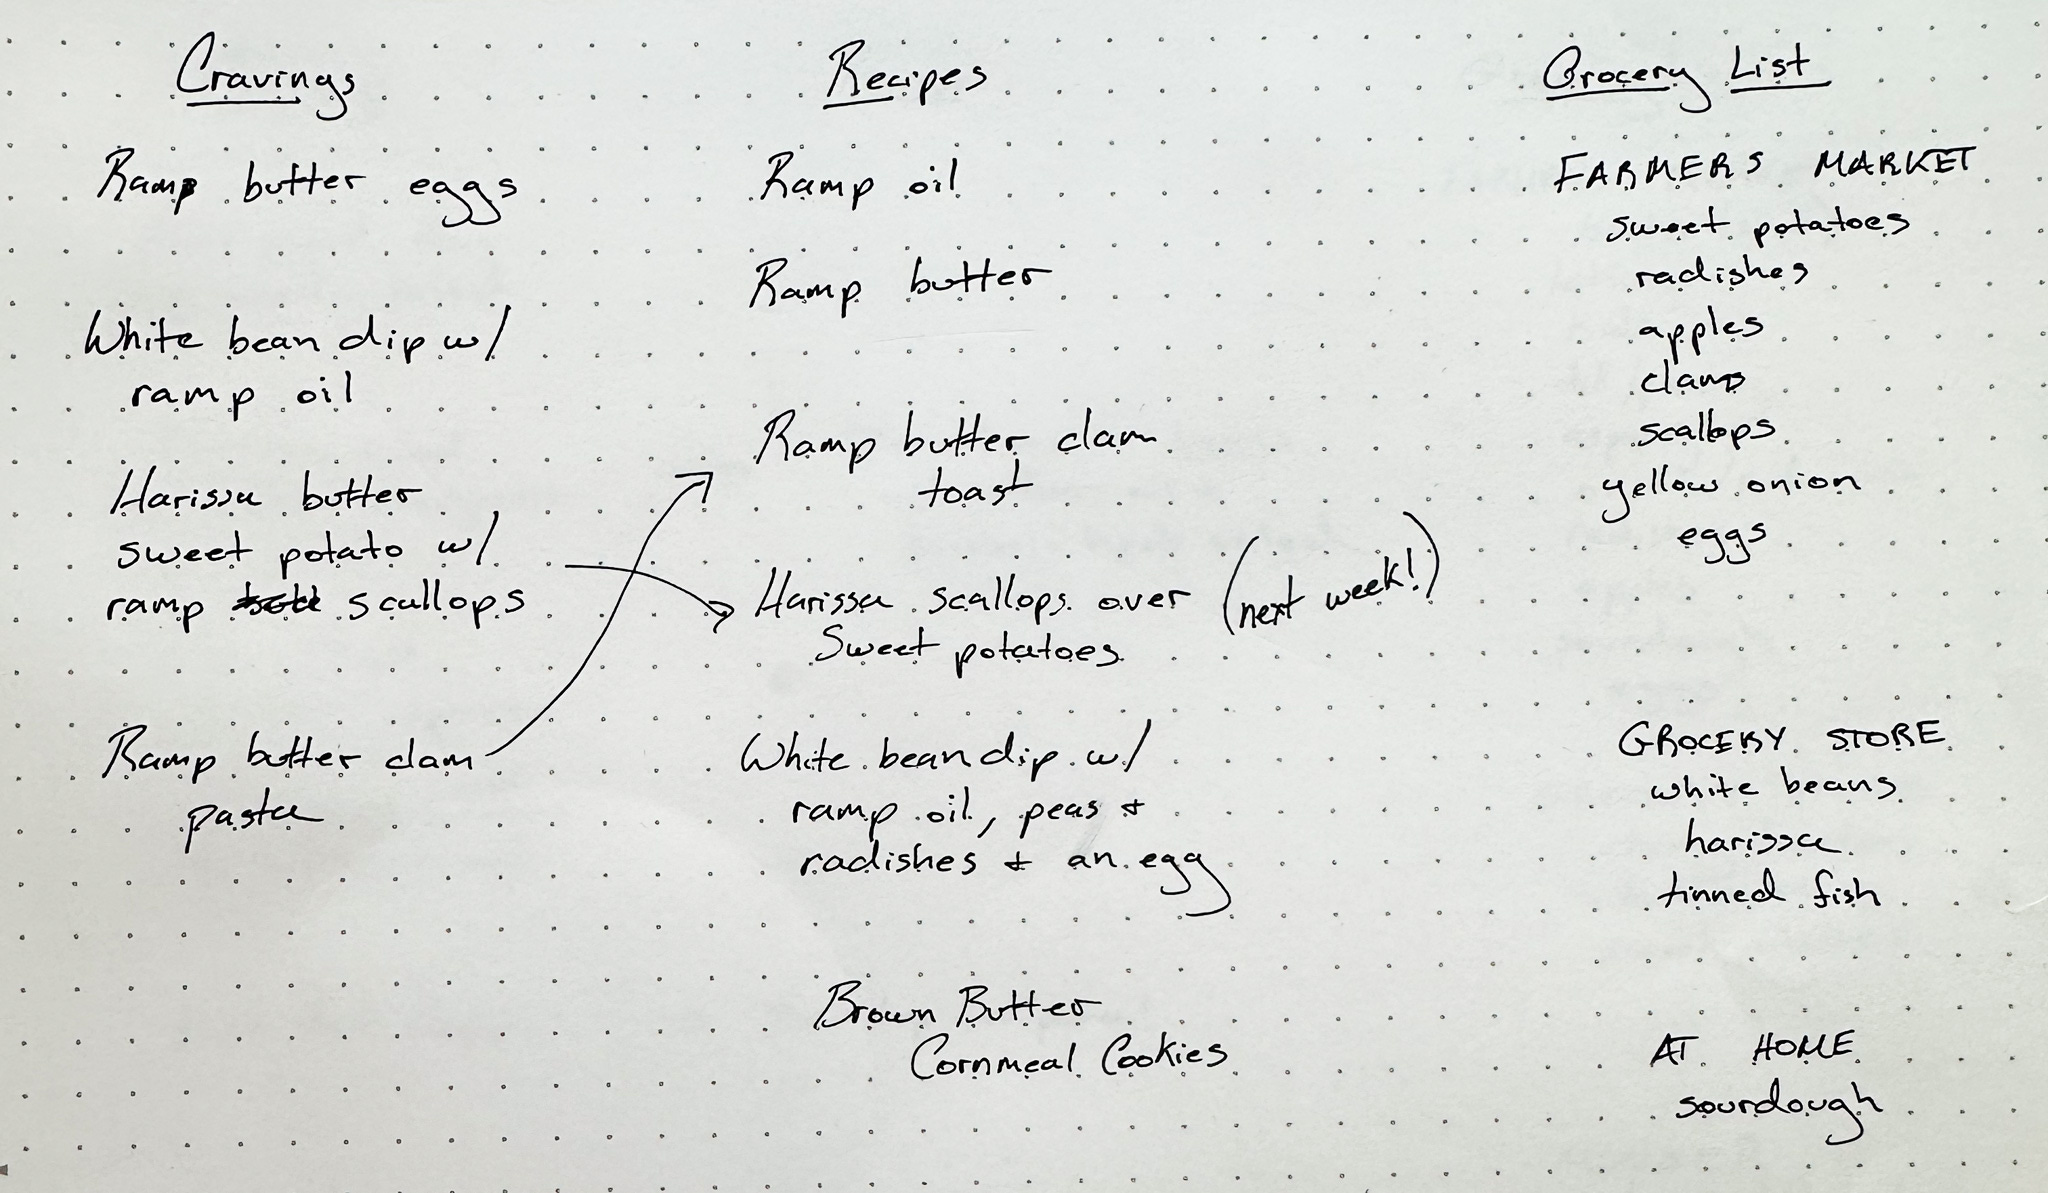 Cravings
Ramp butter eggs
White bean dip w/
ramp oil
Harissa butter
sweet potato w/
ramp scallops
Ramp butter clam
pasta
Recipes
Ramp oil
Ramp butter
Ramp butter clam
toast
Harissa scallops over
Sweet potatoes
(next week!)
White bean dip w/
ramp oil, peas +
radishes + an egg
Brown Butter
Cornmeal Cookies
Grocery List
FARMERS MARKET
sweet potatoes
radishes
apples
clams
scallops
yellow onion
eggs
GROCERY STORE
white beans
harissa
tinned fish
AT HOME
sourdough